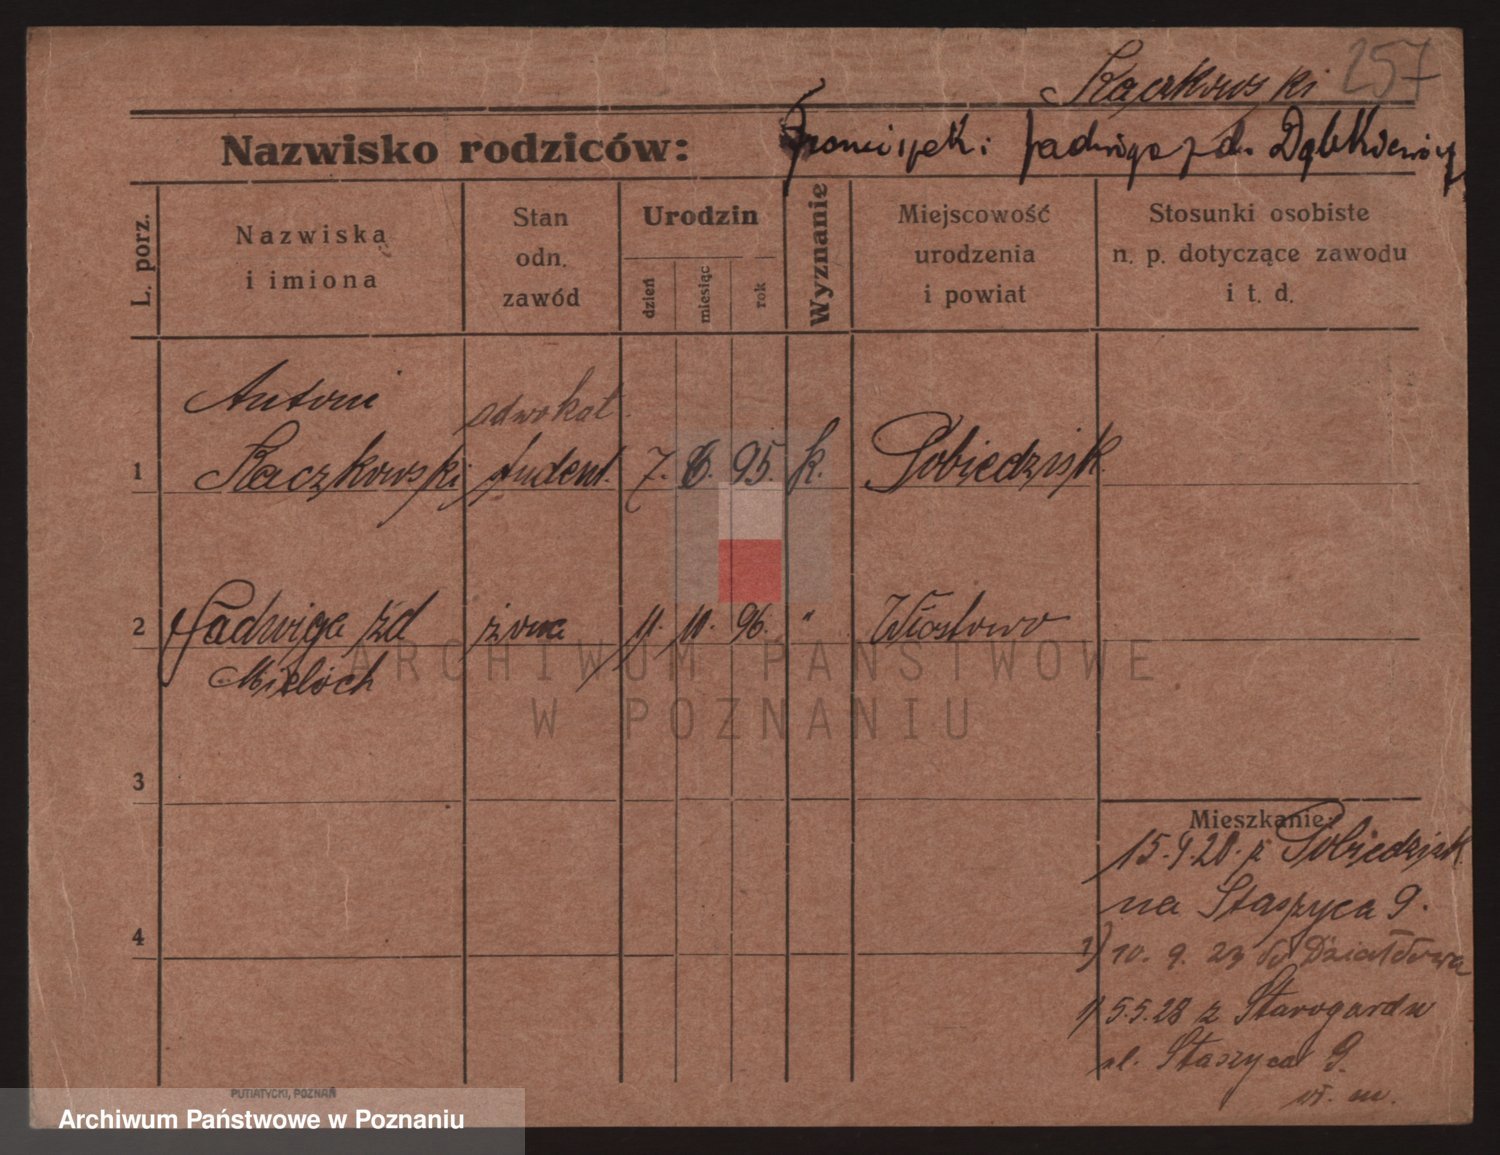 Kaczkowski 257
Nazwisko rodziców: Franciszek i Jadwiga z d. Dąbkiewicz
L. porz.
Nazwiska
i imiona
Stan
odn.
zawód
Urodzin
dzień
miesiąc
rok
Wyznanie
Miejscowość
urodzenia
i powiat
Stosunki osobiste
n. p. dotyczące zawodu
i t. d.
Antoni adwokat
1 Kaczkowski student. 7. 6. 95. k. Pobiedzisk.
2 Jadwiga zd żona 11. 11. 96. " Włostowo
Mieloch
3
Mieszkanie:
15.9.20. z Pobiedzisk
na Staszyca 9.
4
1) 10. 9. 23 do Działdowa
1) 5.5.28 z Starogardu
ul. Staszyca 9.
ARCHIWUM PAŃSTWOWE
W POZNANIU
PUTIATYCKI, POZNAŃ
Archiwum Państwowe w Poznaniu